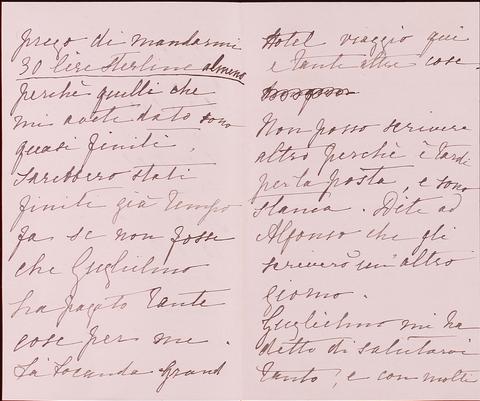 prego di mandarmi
30 lire sterline almeno
perchè quelli che
mi avete dato sono
quasi finiti,
sarebbero stati
finite già tempo
fa se non fosse
che Guglielmo
ha pagato tante
cose per me.
La locanda Grand
Hotel viaggio qui
e tante altre cose.
Non posso scrivere
altro perchè è tardi
per la posta, e sono
stanca. Dite ad
Alfonso che gli
scriverò un altro
giorno.
Guglielmo mi ha
detto di salutarvi
tanto, e con molti